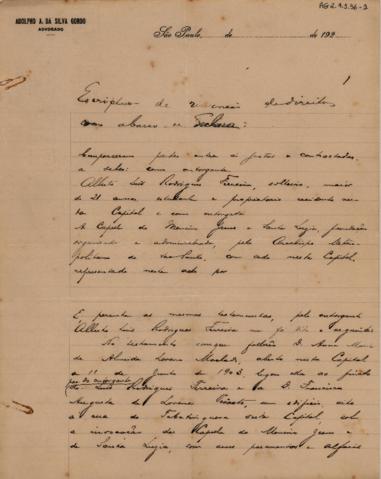 ADOLPHO A. DA SILVA GORDO
ADVOGADO
São Paulo, de de 192
1
Escriptura de de direitos
como abaixo se declara:
Compareceram partes entre si justas e contractadas,
a saber: como outorgante
Alberto Luis Rodrigues Ferreira, solteiro, maior
de 21 annos, estudante e proprietario residente nes-
ta Capital e como outorgada
A Capella do Menino Jesus e Santa Luzia, fundação
organisada e administrada, pelo Arcebispo Metro-
politano de São Paulo, com séde nesta Capital,
representada neste acto por
E, perante as mesmas testemunhas, pelo outorgante
Alberto Luis Rodrigues Ferreira me foi dito o seguinte:
No testamento com que falleceu D. Anna Maria
de Almeida Lorena Machado, aberto nesta Capital
a 11 de Junho de 1903, legou ella ao
pae do outorgante
Luis Rodrigues Ferreira e a D. Francisca
Augusta de Lorena um edificio, sito
á rua do Tabatinguera nesta Capital, sob
a invocação da Capella do Menino Jesus e
de Santa Luzia, com seus paramentos e alfaias